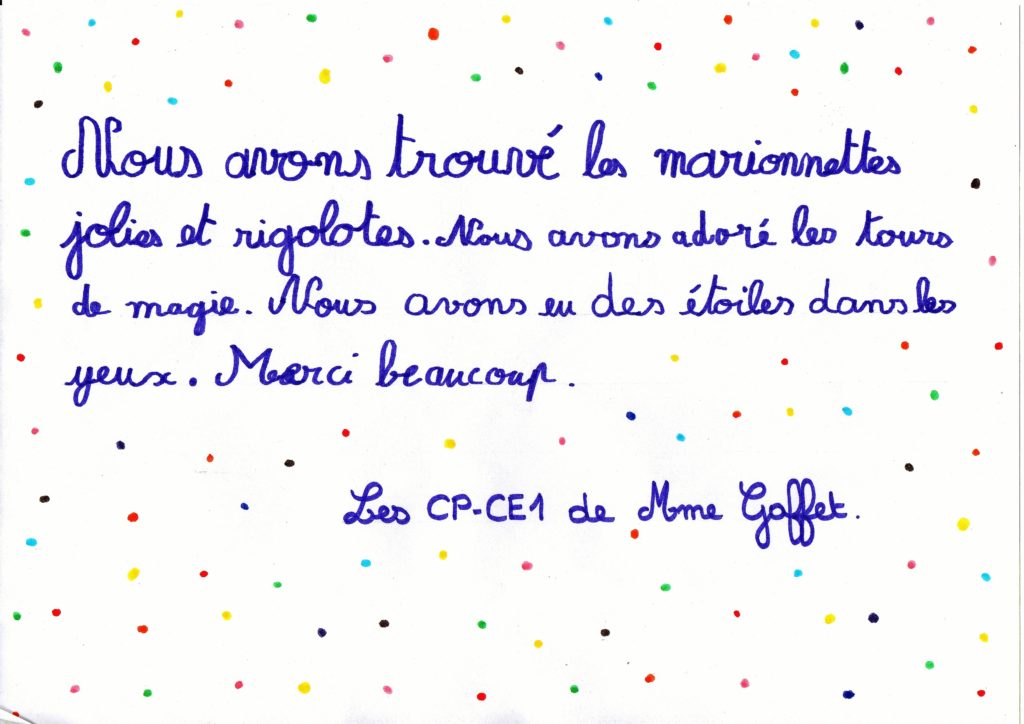 Nous avons trouvé les marionnettes
jolies et rigolotes. Nous avons adoré les tours
de magie. Nous avons eu des étoiles dans les
yeux. Merci beaucoup.
Les CP-CE1 de Mme Gaffet.